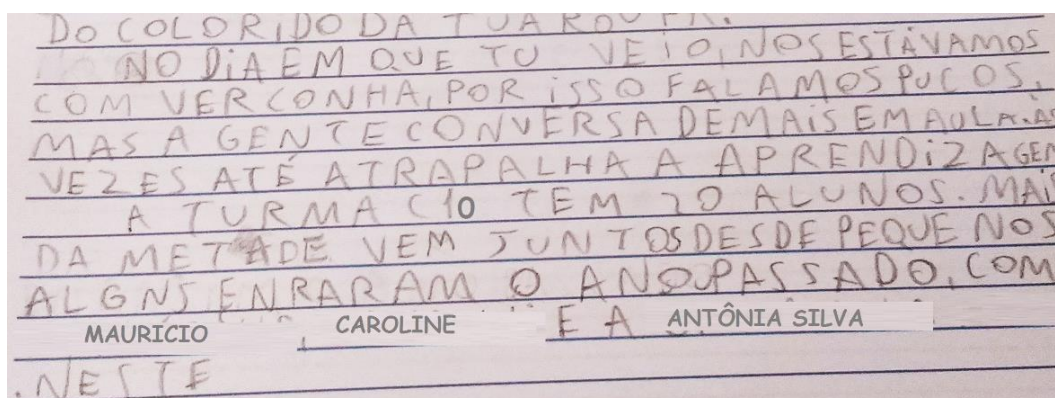 DO COLORIDO DA TUA ROUPA.
NO DIA EM QUE TU VEIO, NOS ESTÁVAMOS
COM VERCONHA, POR ISSO FALAMOS PUCOS,
MAS A GENTE CONVERSA DEMAIS EM AULA. AS
VEZES ATÉ ATRAPALHA A APRENDIZAGEM
A TURMA C10 TEM 20 ALUNOS. MAIS
DA METADE VEM JUNTOS DESDE PEQUENOS
ALGNS ENRARAM O ANO PASSADO, COM
MAURICIO, CAROLINE E A ANTÔNIA SILVA
. NESTE